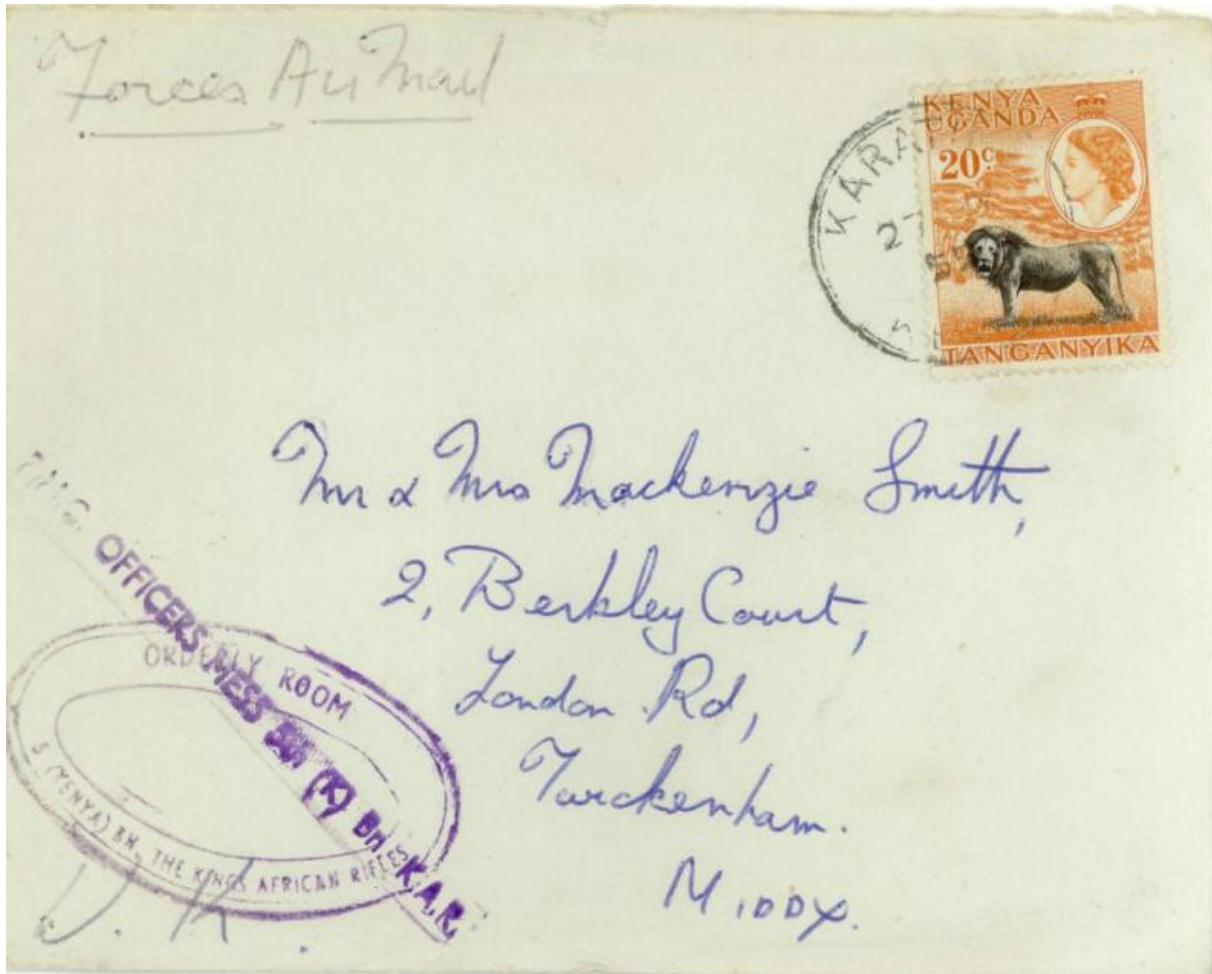 Forces Air Mail
KENYA
UGANDA
20c
TANGANYIKA
27
Mr & Mrs Mackenzie Smith,
2, Berkley Court,
London Rd,
Twickenham.
MIDDX.
OFFICERS MESS 5th (K) BN K.A.R.
ORDERLY ROOM
5 (KENYA) BN. THE KINGS AFRICAN RIFLES
U.K.